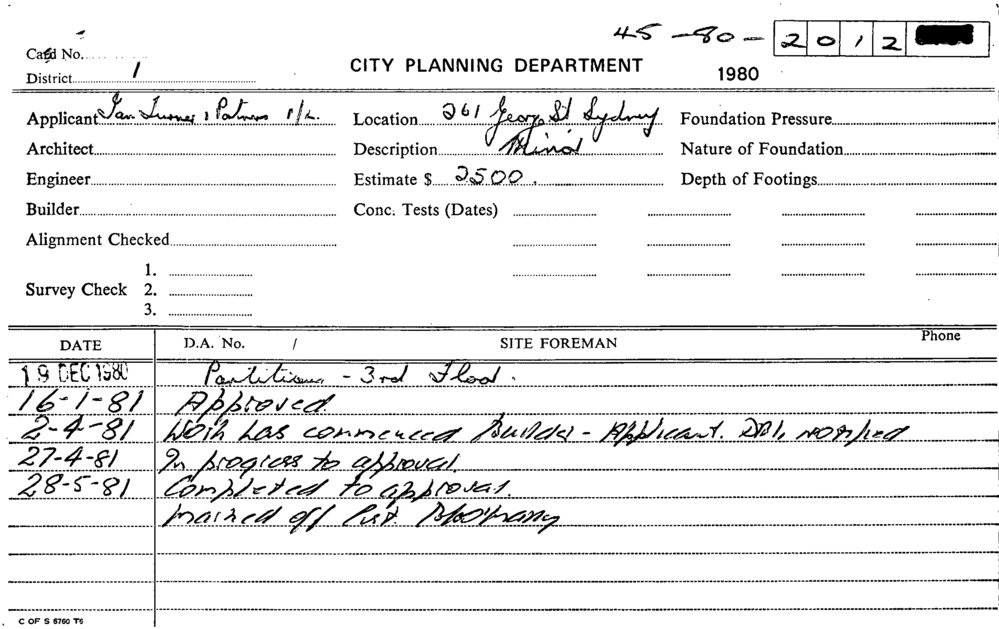 45-80-2012
Card No.
District 1
CITY PLANNING DEPARTMENT
1980
Applicant Ian Turner & Patners P/L.
Location 261 George St Sydney
Foundation Pressure
Architect
Description Minor
Nature of Foundation
Engineer
Estimate $ 2500.
Depth of Footings
Builder
Conc. Tests (Dates)
Alignment Checked
Survey Check 1.
2.
3.
DATE D.A. No. / SITE FOREMAN Phone
19 DEC 1980 Partitions - 3rd Floor.
16-1-81 Approved.
2-4-81 Work has commenced Builder - Applicant. notified
27-4-81 In progress to approval.
28-5-81 Completed to approval.
marked off
C OF S 6760 T6